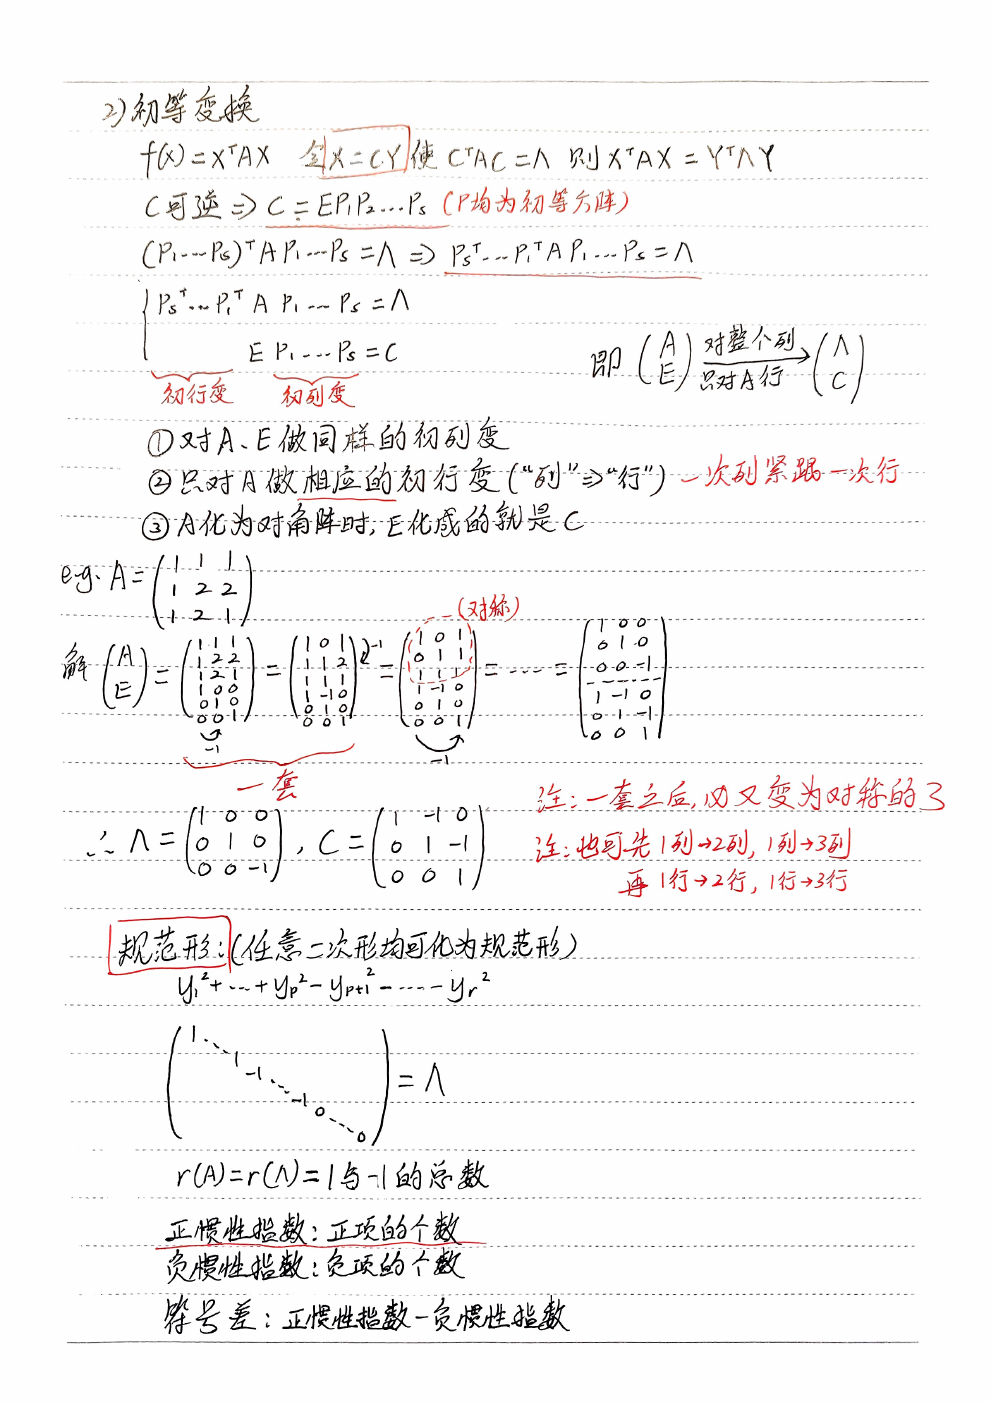 2)初等变换
f(x)=XᵀAX 令X=CY使 CᵀAC=Λ 则 XᵀAX=YᵀΛY
C可逆⇒C=EP₁P₂...Ps (P均为初等方阵)
(P₁...Ps)ᵀAP₁...Ps=Λ⇒Psᵀ...P₁ᵀAP₁...Ps=Λ
{Psᵀ...P₁ᵀ A P₁...Ps=Λ
E P₁...Ps=C
初行变 初列变
即 (A E) 对整个列 只对A行 → (Λ C)
①对A、E做同样的初列变
②只对A做相应的初行变("列"⇒"行") 一次列紧跟一次行
③A化为对角阵时,E化成的就是C
e.g. A=
(1 1 1
1 2 2
1 2 1)
(对称)
解 (A E) =
(1 1 1
1 2 2
1 2 1
1 0 0
0 1 0
0 0 1)
-1
=
(1 0 1
1 1 2
1 1 1
1 -1 0
0 1 0
0 0 1)
-1
=
(1 0 1
0 1 1
1 1 1
1 -1 0
0 1 0
0 0 1)
-1
= ...... =
(1 0 0
0 1 0
0 0 -1
1 -1 0
0 1 -1
0 0 1)
一套
注:一套之后,必又变为对称的了
∴ Λ=
(1 0 0
0 1 0
0 0 -1)
, C=
(1 -1 0
0 1 -1
0 0 1)
注:也可先1列→2列,1列→3列
再1行→2行,1行→3行
规范形:(任意二次形均可化为规范形)
y₁²+...+yp²-yp+1²-...-yr²
(1
1
-1
-1
0
0)
=Λ
r(A)=r(Λ)=1与-1的总数
正惯性指数:正项的个数
负惯性指数:负项的个数
符号差:正惯性指数-负惯性指数